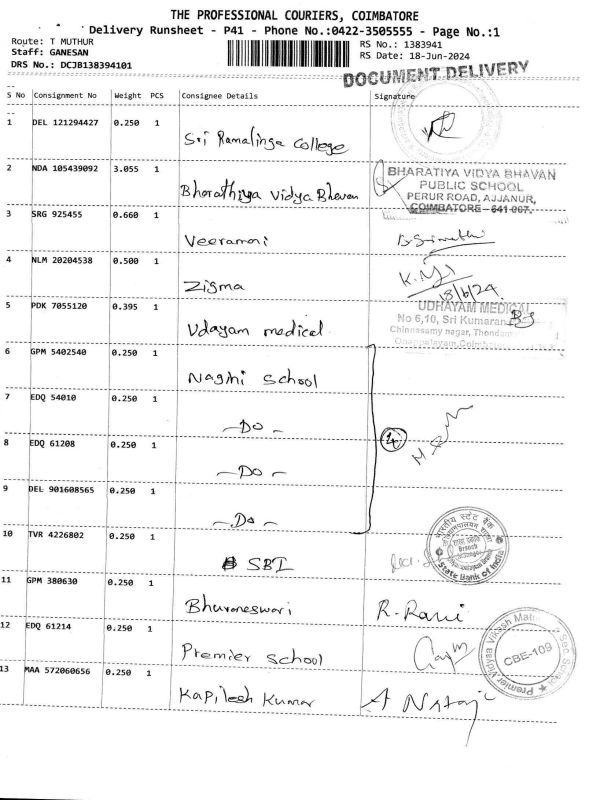 THE PROFESSIONAL COURIERS, COIMBATORE
Delivery Runsheet - P41 - Phone No.:0422-3505555 - Page No.:1
Route: T MUTHUR
RS No.: 1383941
Staff: GANESAN
RS Date: 18-Jun-2024
DRS No.: DCJB138394101
DOCUMENT DELIVERY
S No Consignment No Weight PCS Consignee Details Signature
1 DEL 121294427 0.250 1 Sri Ramalinga College
2 NDA 105439092 3.055 1 Bharathiya Vidya Bhavan
BHARATIYA VIDYA BHAVAN
PUBLIC SCHOOL
PERUR ROAD, AJJANUR,
COIMBATORE - 641 007.
3 SRG 925455 0.660 1 Veeramani
4 NLM 20204538 0.500 1 Zigma
18/6/24
5 PDK 7055120 0.395 1 Udayam medical
UDHAYAM MEDICAL
No 6,10, Sri Kumaran
Chinnasamy nagar,
6 GPM 5402540 0.250 1 Nagini School
7 EDQ 54010 0.250 1 - Do -
4
8 EDQ 61208 0.250 1 - Do -
9 DEL 901608565 0.250 1 - Do -
10 TVR 4226802 0.250 1 SBI
भारतीय स्टेट बैंक
Branch
State Bank of India
11 GPM 380630 0.250 1 Bhuvaneswari R. Rani
12 EDQ 61214 0.250 1 Premier School
Premier Vidyaa Vikash Sec School
CBE-109
13 MAA 572060656 0.250 1 Kapilesh Kumar